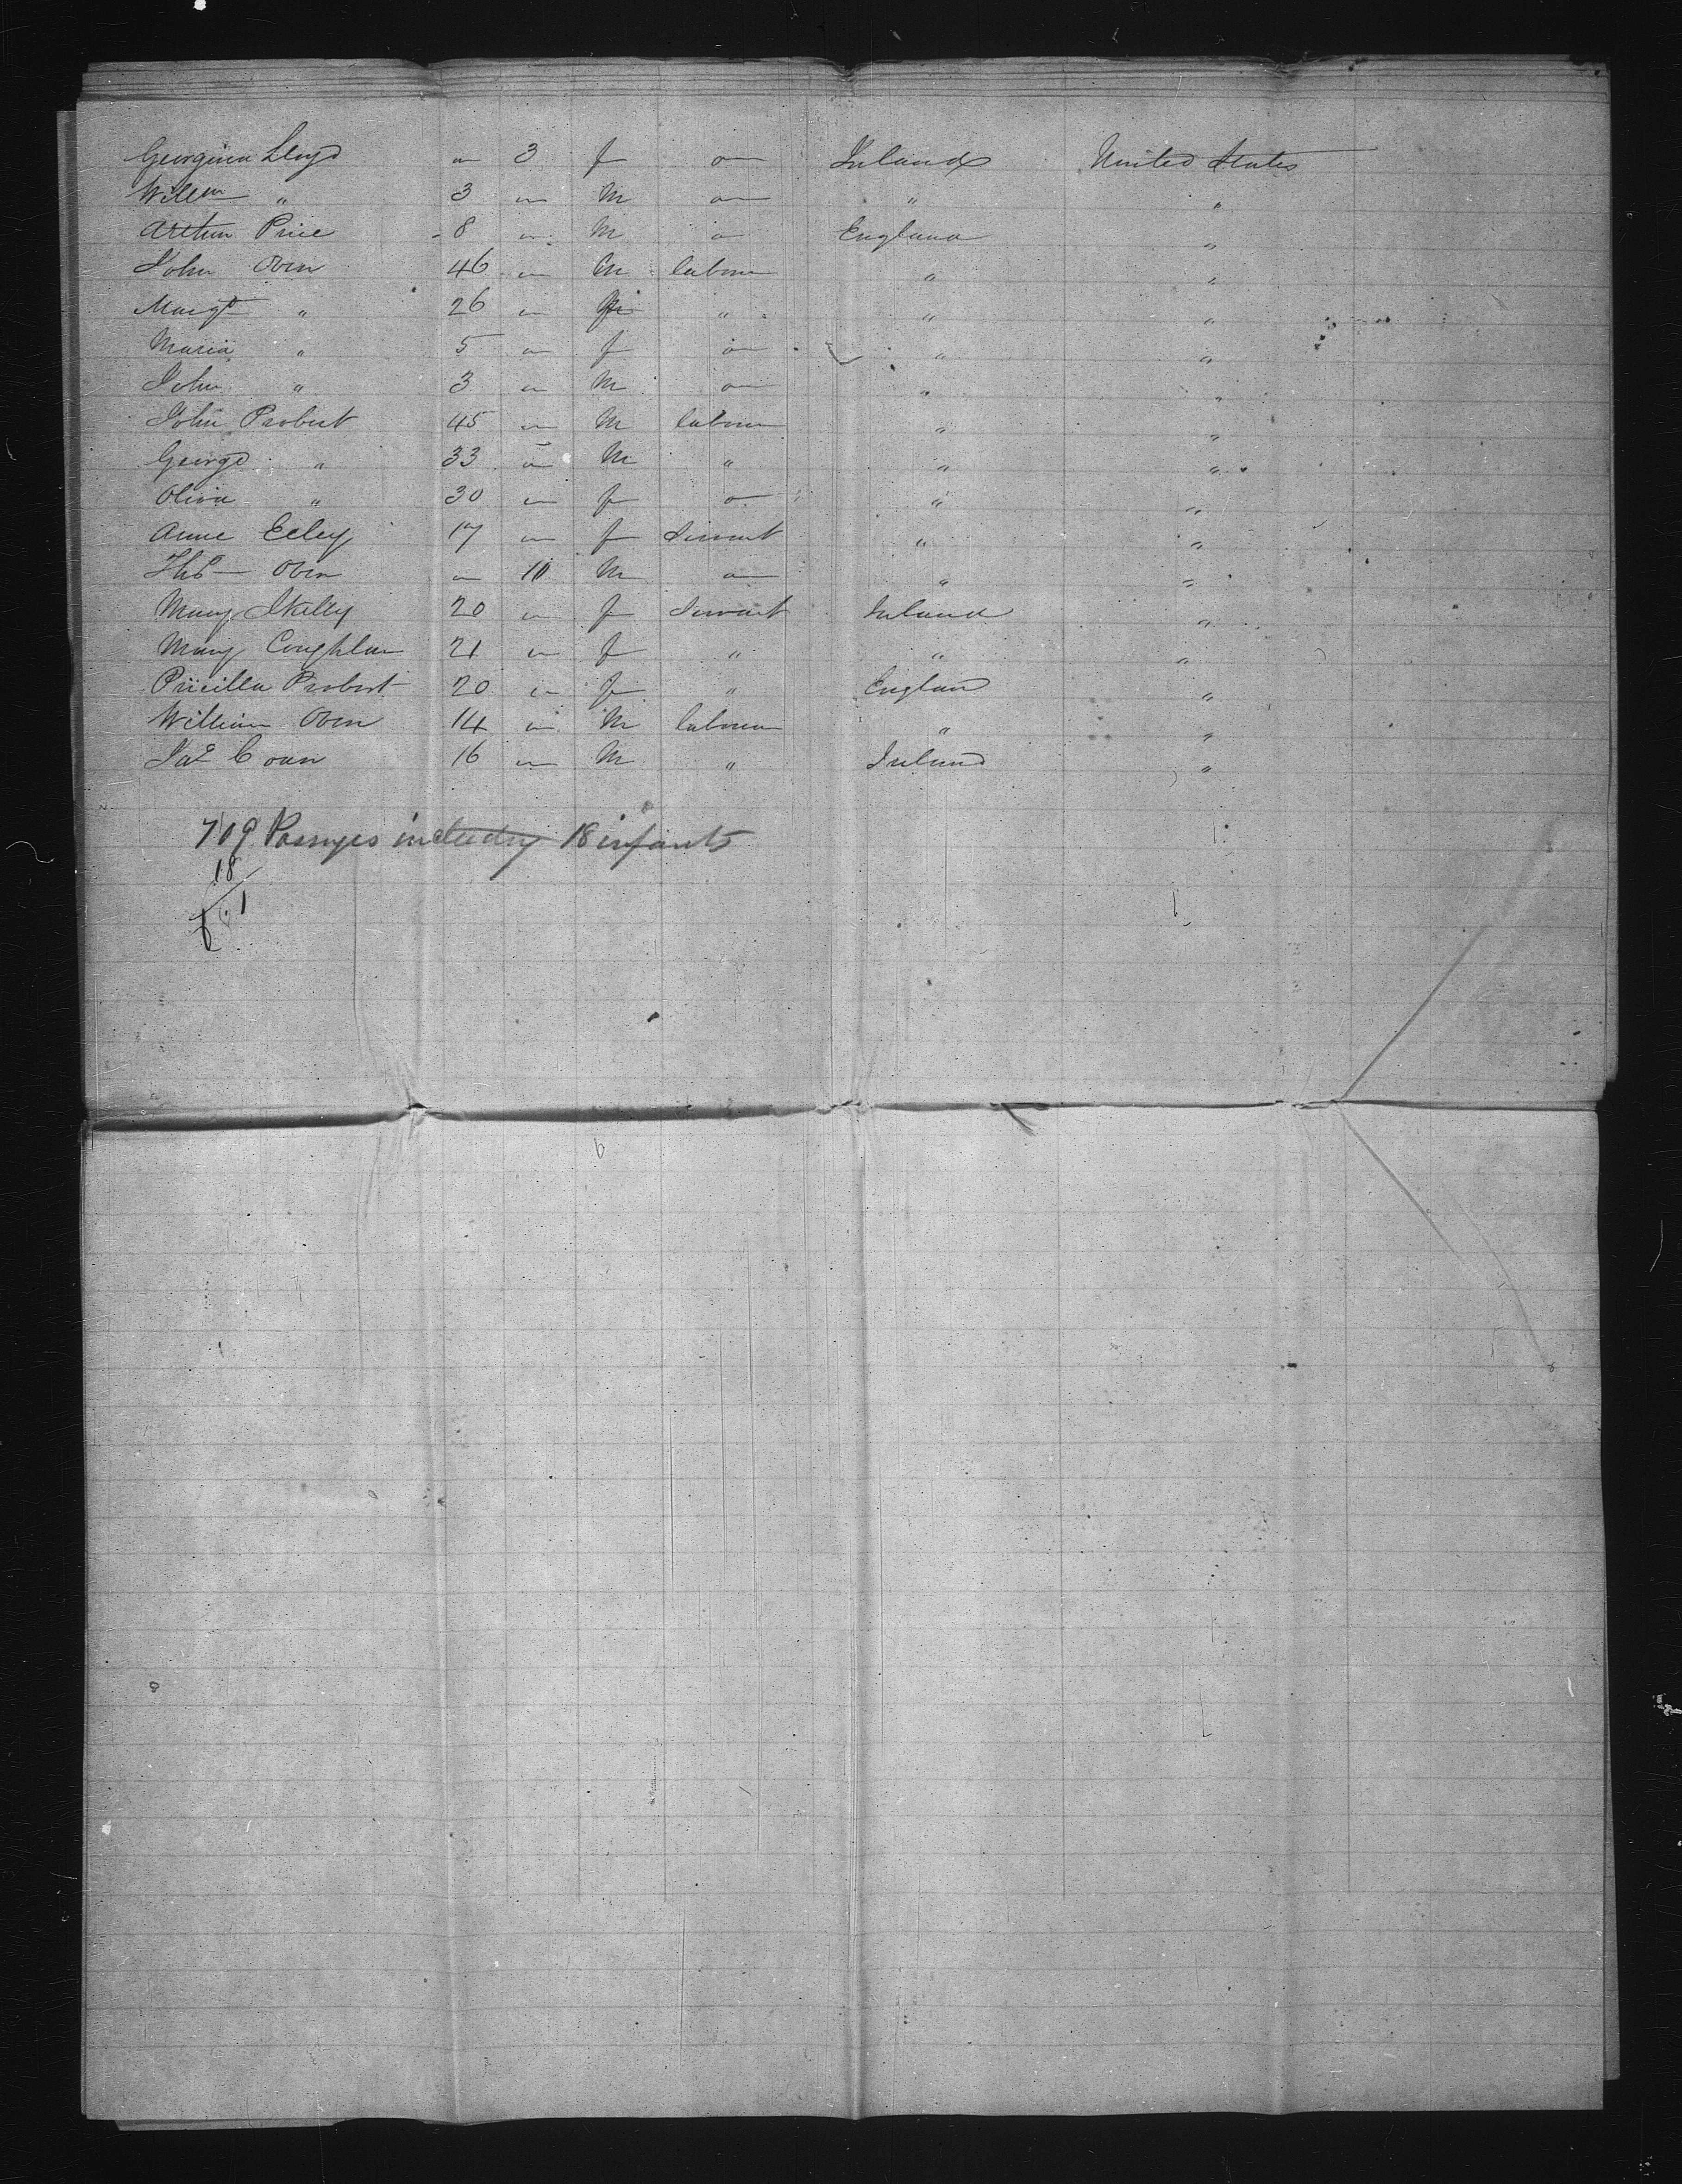 Georgina Lloyd — 3 f — Ireland United States
Willm " 3 — M — " "
Arthur Price 8 — M — England "
John Oben 46 — M labour " "
Margt " 26 — f " " "
Maria " 5 — f — " "
John " 3 — M — " "
John Probert 45 — M labour " "
George " 33 — M " " "
Olivia " 30 — f — " "
Anne Eeley 17 — f Servant " "
Thos Oben — 10 M — " "
Mary Skelly 20 — f Servant Ireland "
Mary Coughlan 21 — f " " "
Pricilla Probert 20 — f " England "
William Oben 14 — M labour " "
Jas Coan 16 — M " Ireland "
709 Passnges including 18 infants
18